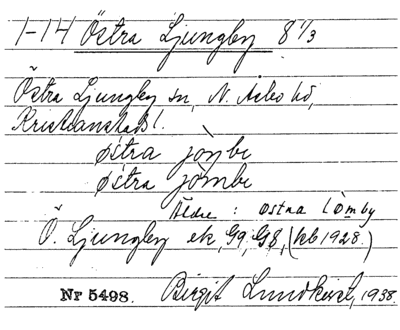 1-14 Östra Ljungby 8 1/3
Östra Ljungby sn, N. Åsbo hd,
Kristianstads l.
østra jòŋbe
østra jòmbe
Äldre: østra lòmby
Ö. Ljungby ek, G9, G8, (kb 1928.)
Nr 5498. Birgit Lundkvist, 1938.